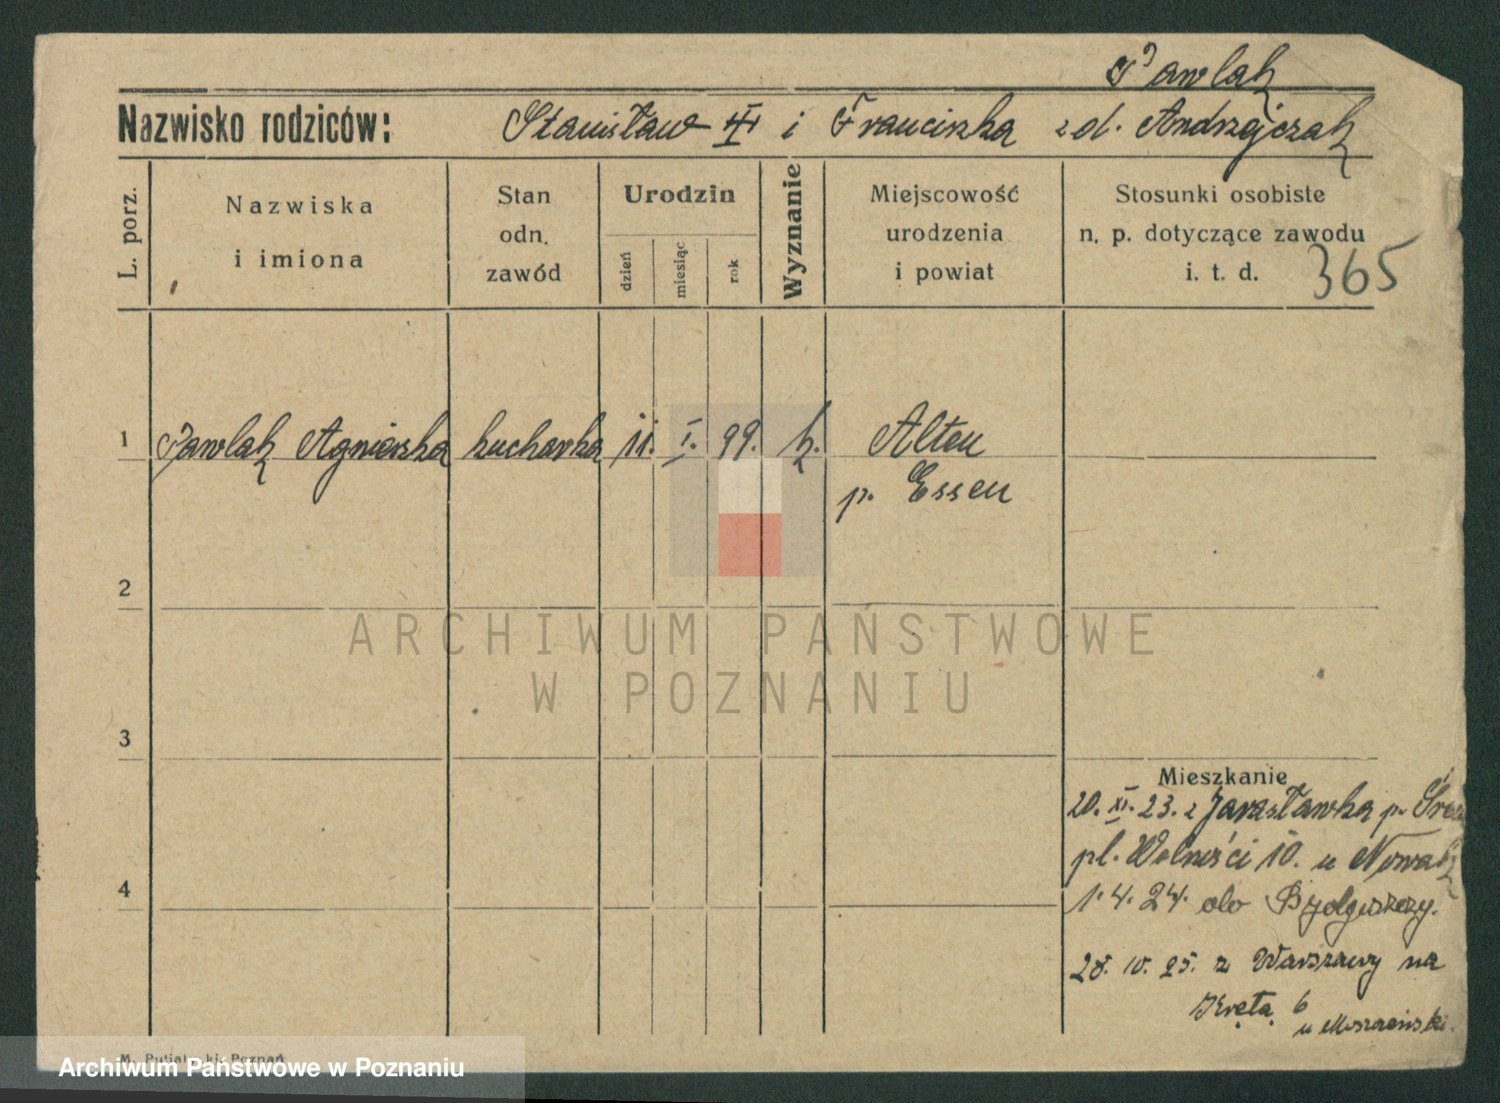 Pawlak
Nazwisko rodziców: Stanisław i Franciszka zd. Andrzejczak
L. porz.
Nazwiska
i imiona
Stan
odn.
zawód
Urodzin
dzień
miesiąc
rok
Wyznanie
Miejscowość
urodzenia
i powiat
Stosunki osobiste
n. p. dotyczące zawodu
i. t. d. 365
1 Pawlak Agnieszka kucharka 11. I. 99. k. Alten
p. Essen
2
ARCHIWUM PAŃSTWOWE
W POZNANIU
3
Mieszkanie
20. XI. 23. z Jarosławka p.
pl. Wolności 10. u Nowak
4
1. 4. 24. do Bydgoszczy.
28. IV. 25. z Warszawy na
Kręta 6
u
M. Putiat ki, Poznań
Archiwum Państwowe w Poznaniu